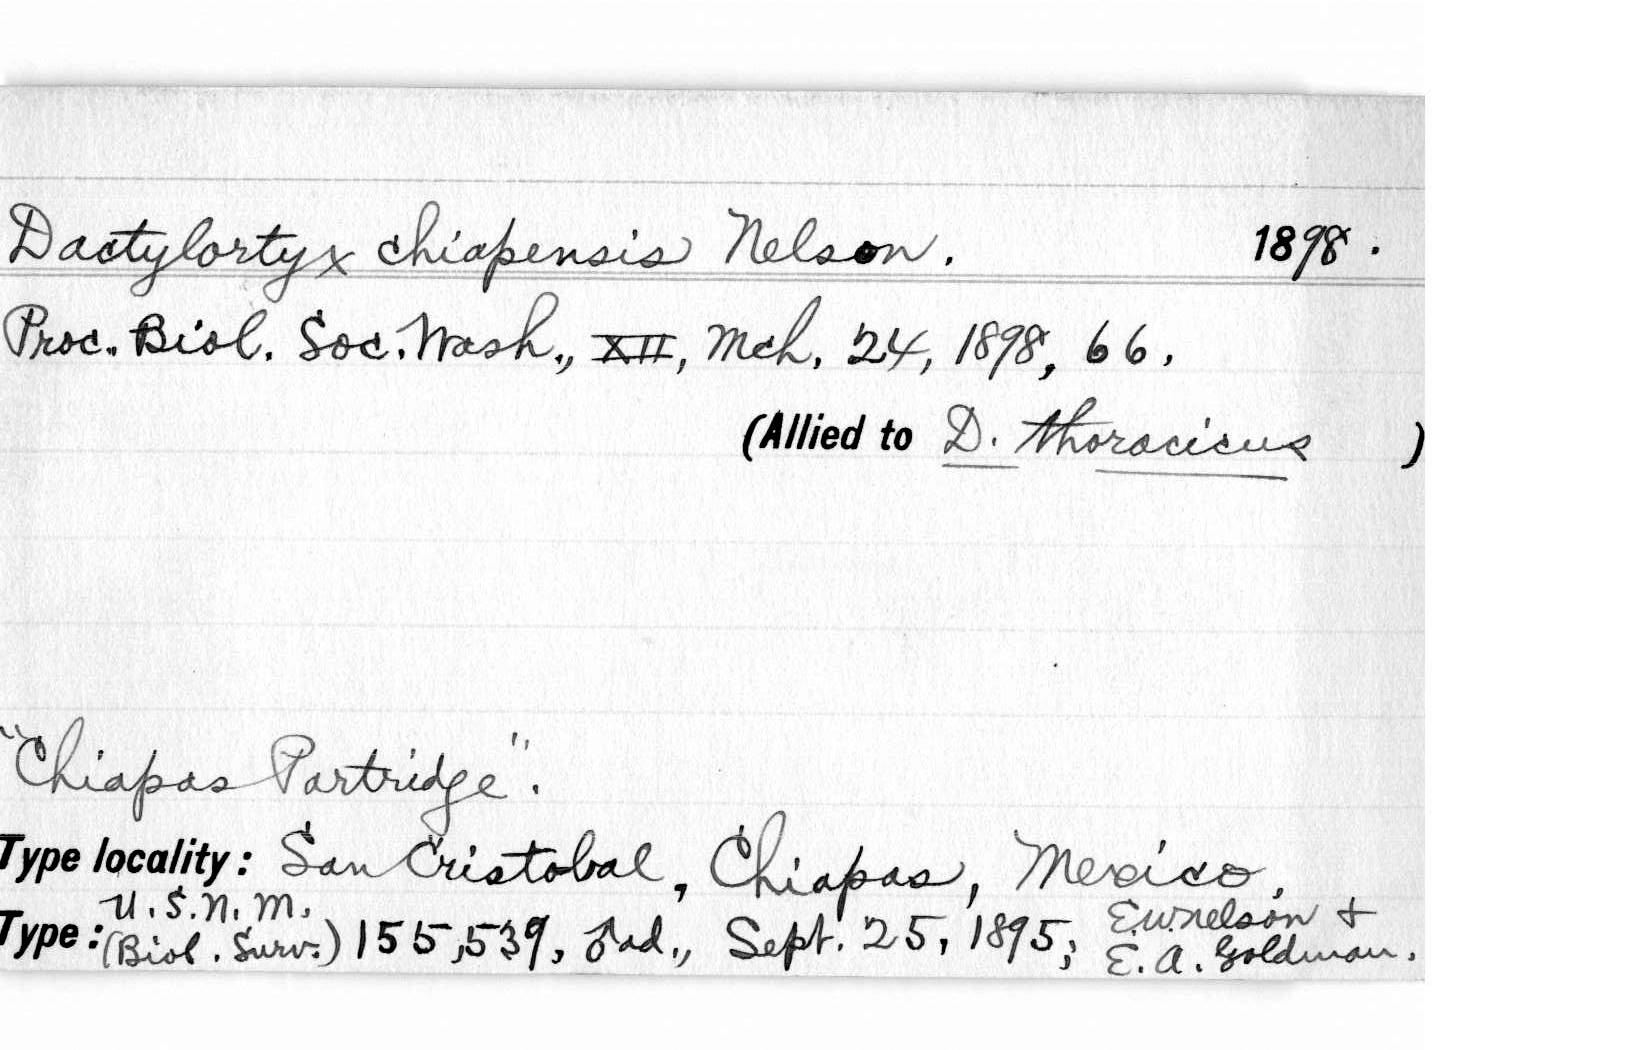 Dactylortyx chiapensis Nelson. 1898.
Proc. Biol. Soc. Wash., XII, Mch. 24, 1898, 66.
(Allied to D. thoracicus )
"Chiapas Partridge".
Type locality: San Cristobal, Chiapas, Mexico.
U.S.N.M.
Type: (Biol. Surv.) 155,539, ♂ ad., Sept. 25, 1895; E.W. Nelson &
E. A. Goldman.